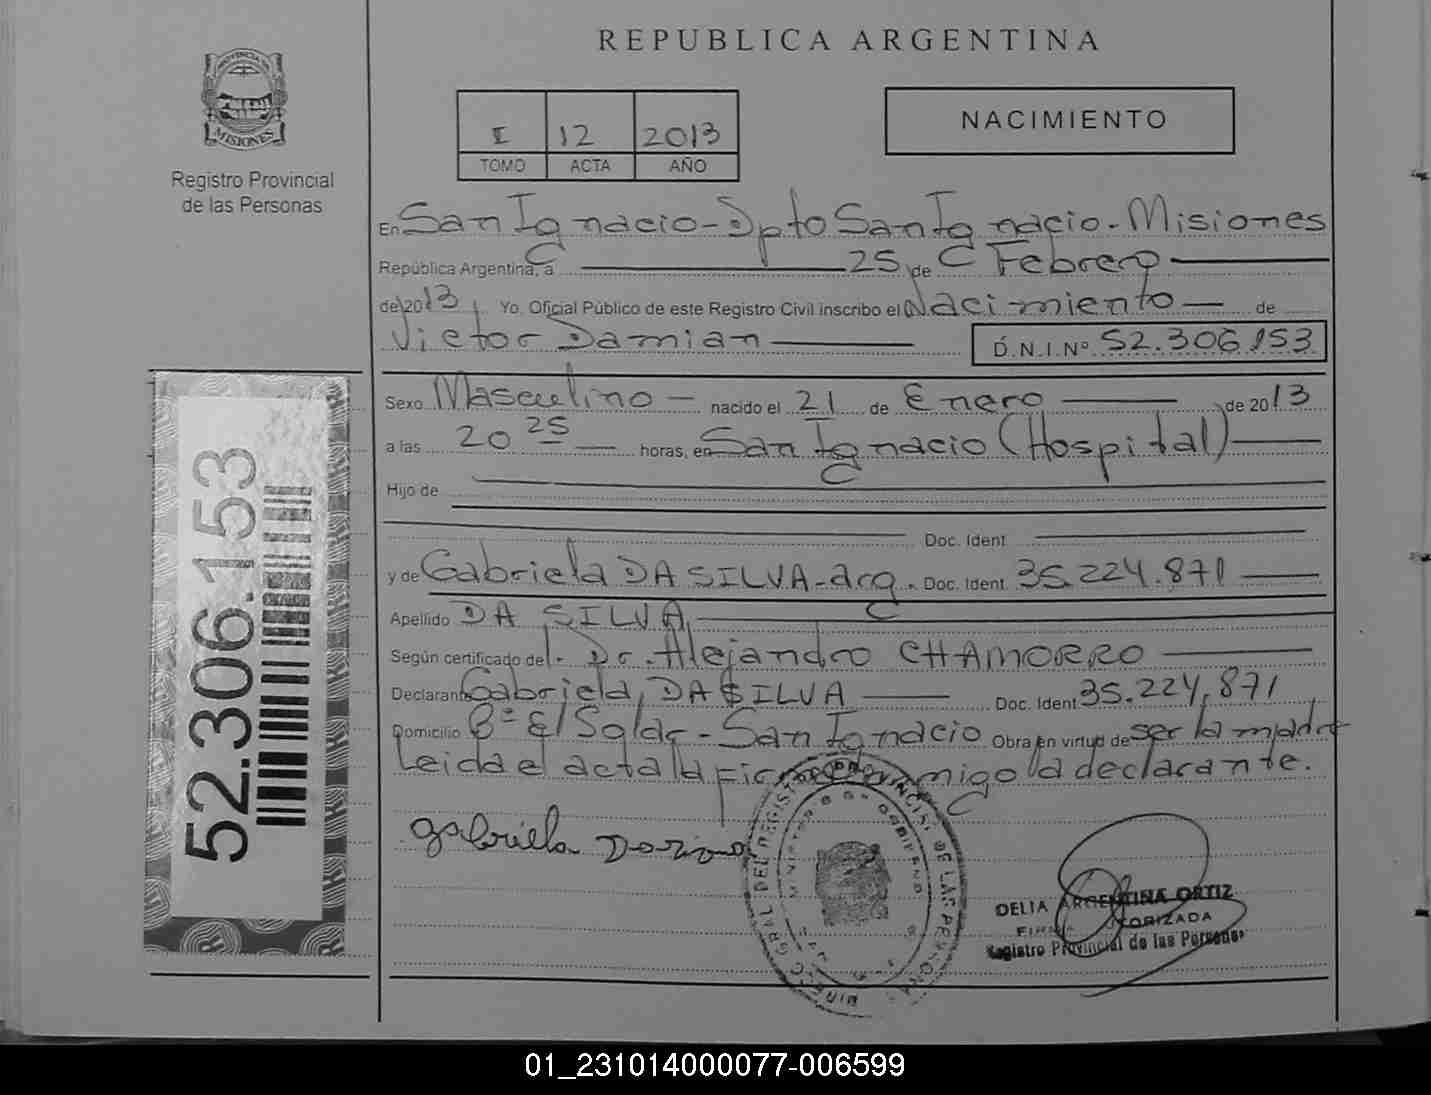 REPUBLICA ARGENTINA
PROVINCIA DE
MISIONES
Registro Provincial
de las Personas
I 12 2013
TOMO ACTA AÑO
NACIMIENTO
En San Ignacio - Dpto San Ignacio - Misiones
República Argentina, a 25 de Febrero
de 2013 Yo, Oficial Público de este Registro Civil inscribo el Nacimiento de
Victor Damian D.N.I.Nº 52.306.153
Sexo Masculino nacido el 21 de Enero de 2013
a las 20 25 horas, en San Ignacio (Hospital)
Hijo de
Doc. Ident
y de Gabriela DA SILVA - arg. Doc. Ident. 35.224.871
Apellido DA SILVA
Según certificado del. Dr. Alejandro CHAMORRO
Declarante Gabriela DA SILVA Doc. Ident 35.224.871
Domicilio Bº El Solar - San Ignacio Obra en virtud de ser la madre
Leida el acta la firma conmigo la declarante.
gabriela
DELIA ARGENTINA ORTIZ
FIRMA AUTORIZADA
Registro Provincial de las Personas
52.306.153
01_231014000077-006599